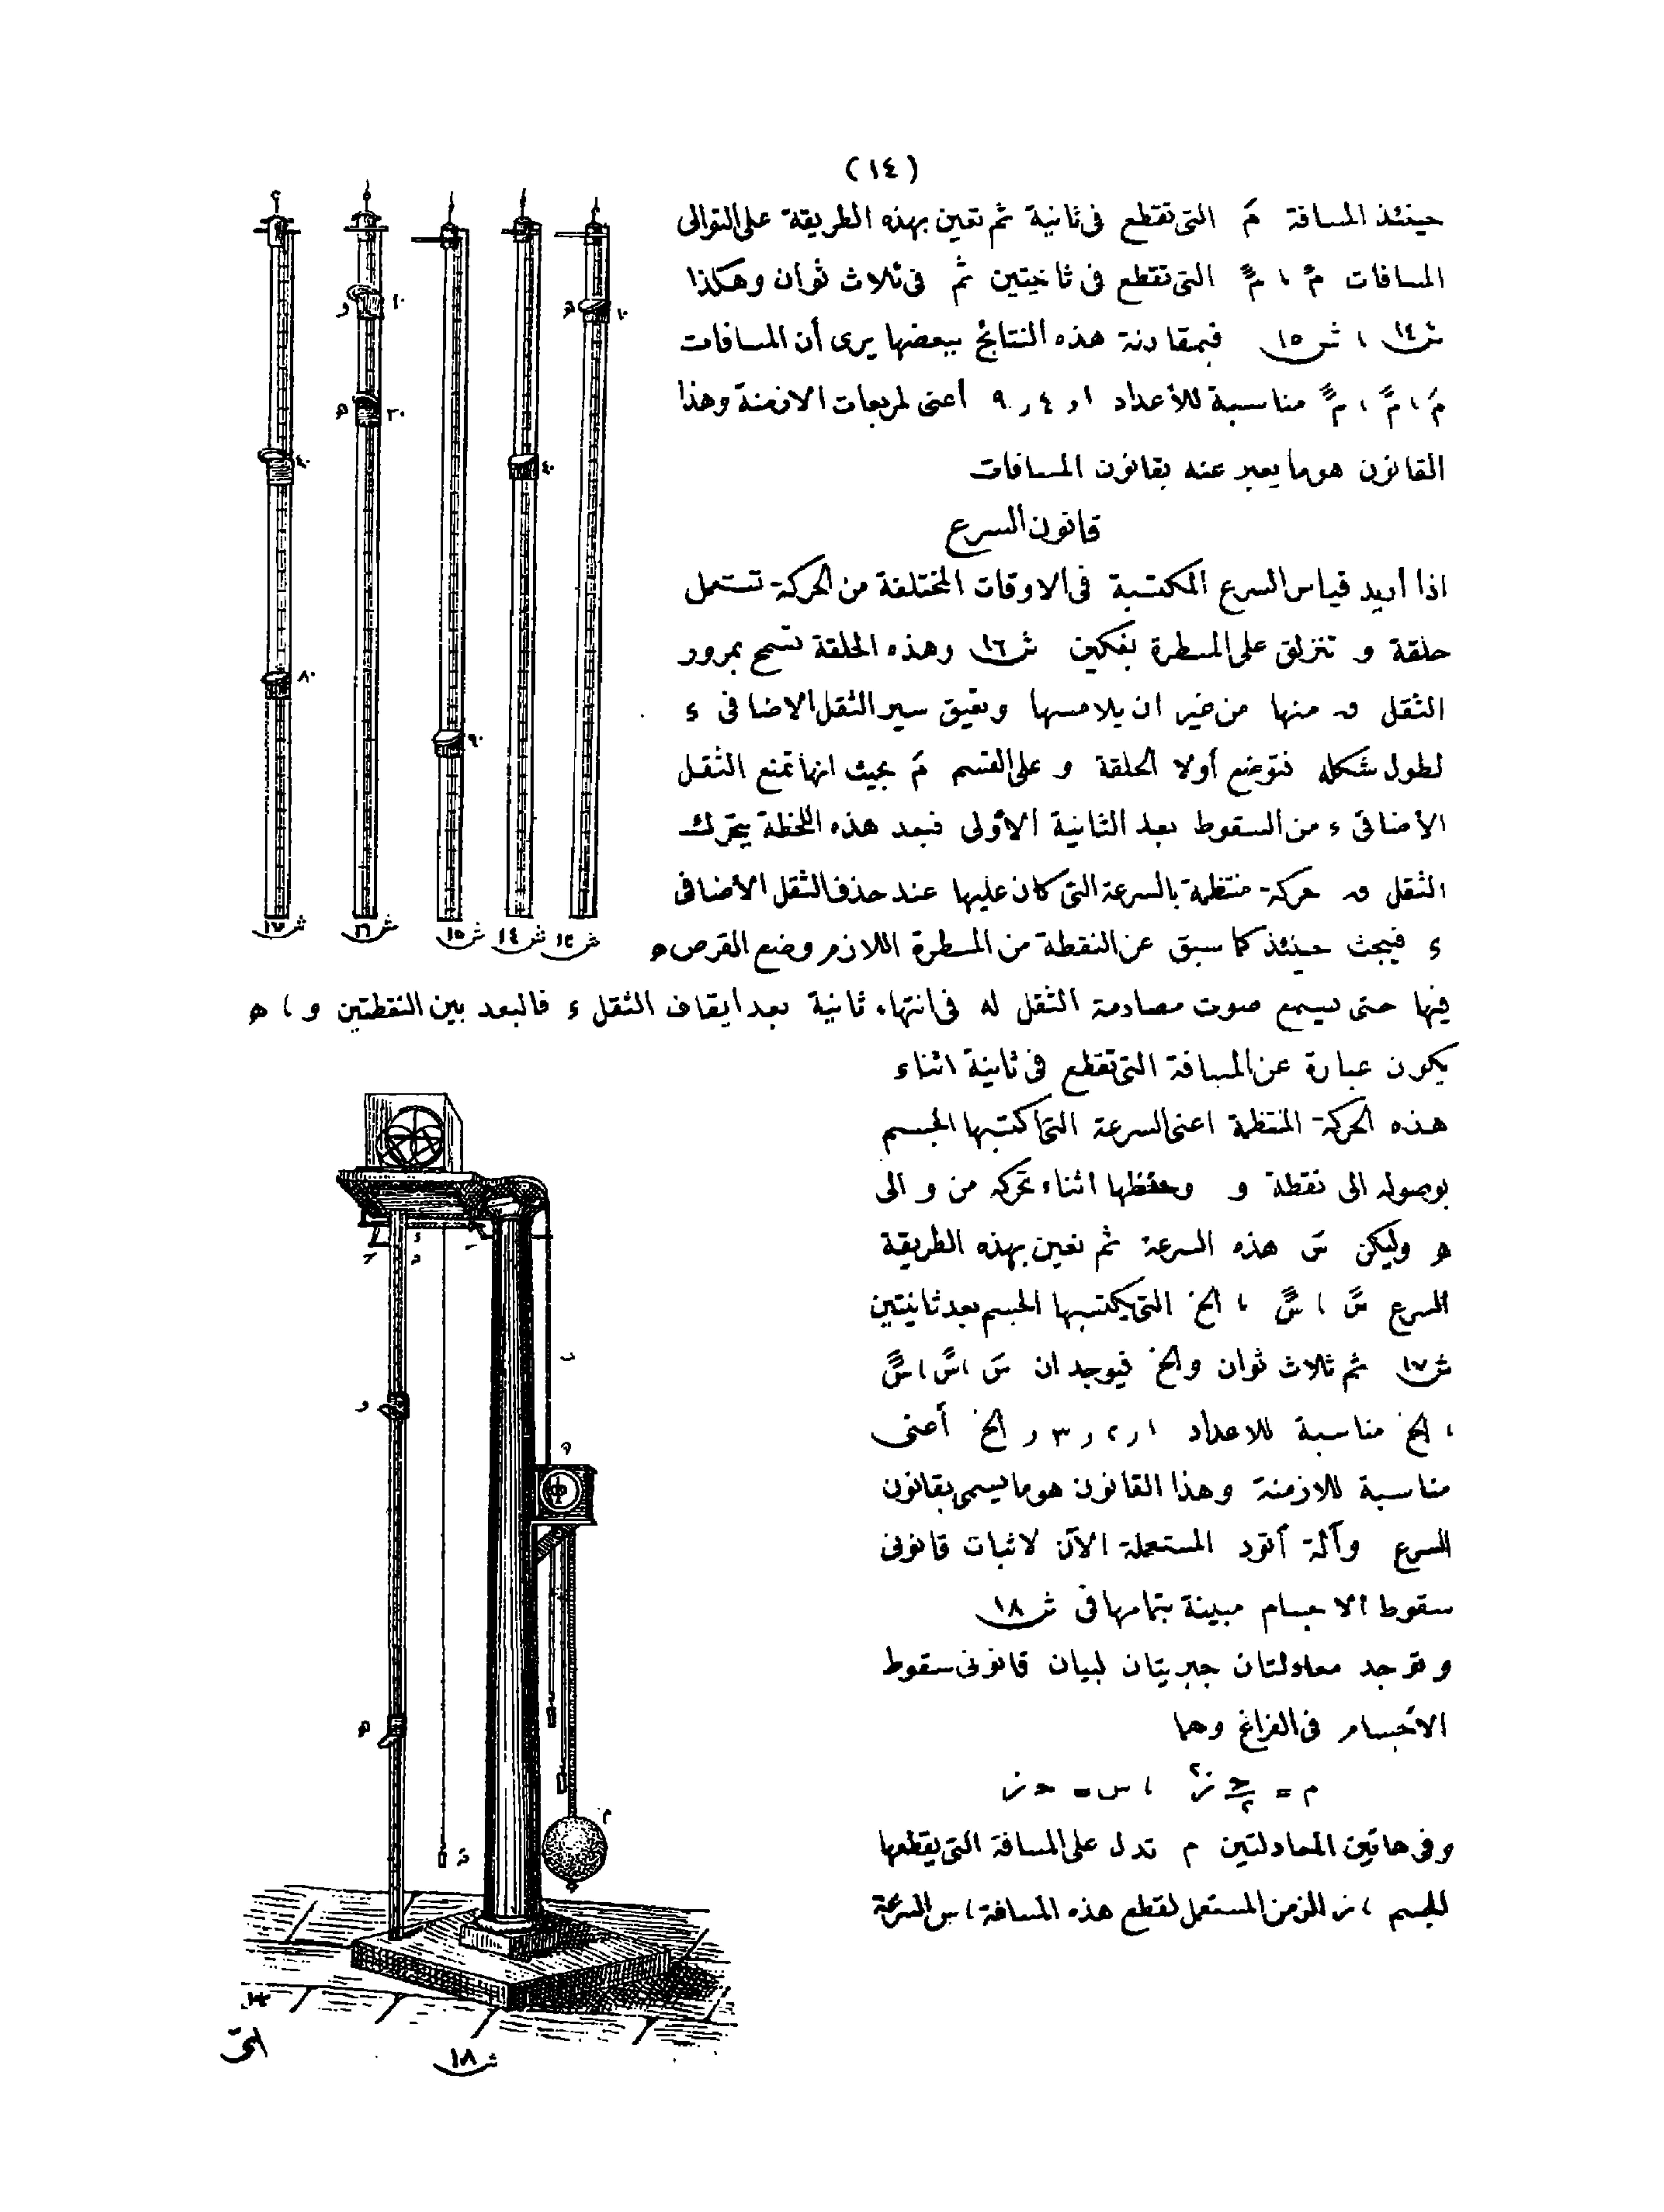 (١٤)
حينئذ المسافة مَ التى تقطع فى ثانية ثم تعين بهذه الطريقة على التوالى
المسافات مً ، مًَ التى تقطع فى ثانيتين ثم فى ثلاث ثوان وهكذا
ش١٤ ، ش١٥ فبمقارنة هذه النتائج ببعضها يرى أن المسافات
مَ ، مً ، مًَ مناسبة للأعداد ١ر ٤ر ٩ أعنى لمربعات الازمنة وهذا
القانون هو ما يعبر عنه بقانون المسافات
قانون السرع
اذا أريد قياس السرع المكتسبة فى الاوقات المختلفة من الحركة تستعمل
حلقة و تنزلق على المسطرة بفكين ش١٦ وهذه الحلقة تسمح بمرور
الثقل ق منها من غير ان يلامسها وتعيق سير الثقل الاضافى ء
لطول شكله فتوضع أولا الحلقة و على القسم مَ بحيث انها تمنع الثقل
الاضافى ء من السقوط بعد الثانية الأولى فبعد هذه اللحظة يتحرك
الثقل ق حركة منتظمة بالسرعة التى كان عليها عند حذف الثقل الأضافى
ء فيبحث حينئذ كما سبق عن النقطة من المسطرة اللازم وضع القرص ه
فيها حتى يسمع صوت مصادمة الثقل له فى انتهاء ثانية بعد ايقاف الثقل ء فالبعد بين النقطتين و ، ه
يكون عبارة عن المسافة التى تقطع فى ثانية اثناء
هذه الحركة المنتظمة اعنى السرعة التى اكتسبها الجسم
بوصوله الى نقطة و وحفظها اثناء تحركه من و الى
ه وليكن سَ هذه السرعة ثم نعين بهذه الطريقة
السرع سً ، سًَ ، الخ التى يكتسبها الجسم بعد ثانيتين
ش١٧ ثم ثلاث ثوان والخ فيوجد ان سَ ، سً ، سًَ
، الخ مناسبة للاعداد ١ر ٢ر ٣ر الخ أعنى
مناسبة للازمنة وهذا القانون هو ما يسمى بقانون
السرع وآلة أتود المستعملة الآن لاثبات قانونى
سقوط الاجسام مبينة بتمامها فى ش١٨
وتوجد معادلتان جبريتان لبيان قانونى سقوط
الأجسام فى الفراغ وهما
م = ح/٢ ز٢ ، س = ح ز
وفى هاتين المعادلتين م تدل على المسافة التى يقطعها
الجسم ، ز الزمن المستعمل لقطع هذه المسافة ، س السرعة
التى
١٠
١٠
٢٠
٤٠
٤٠
٨٠
٩٠
ش١٧ ش١٦ ش١٥ ش١٤ ش١٣
ش١٨